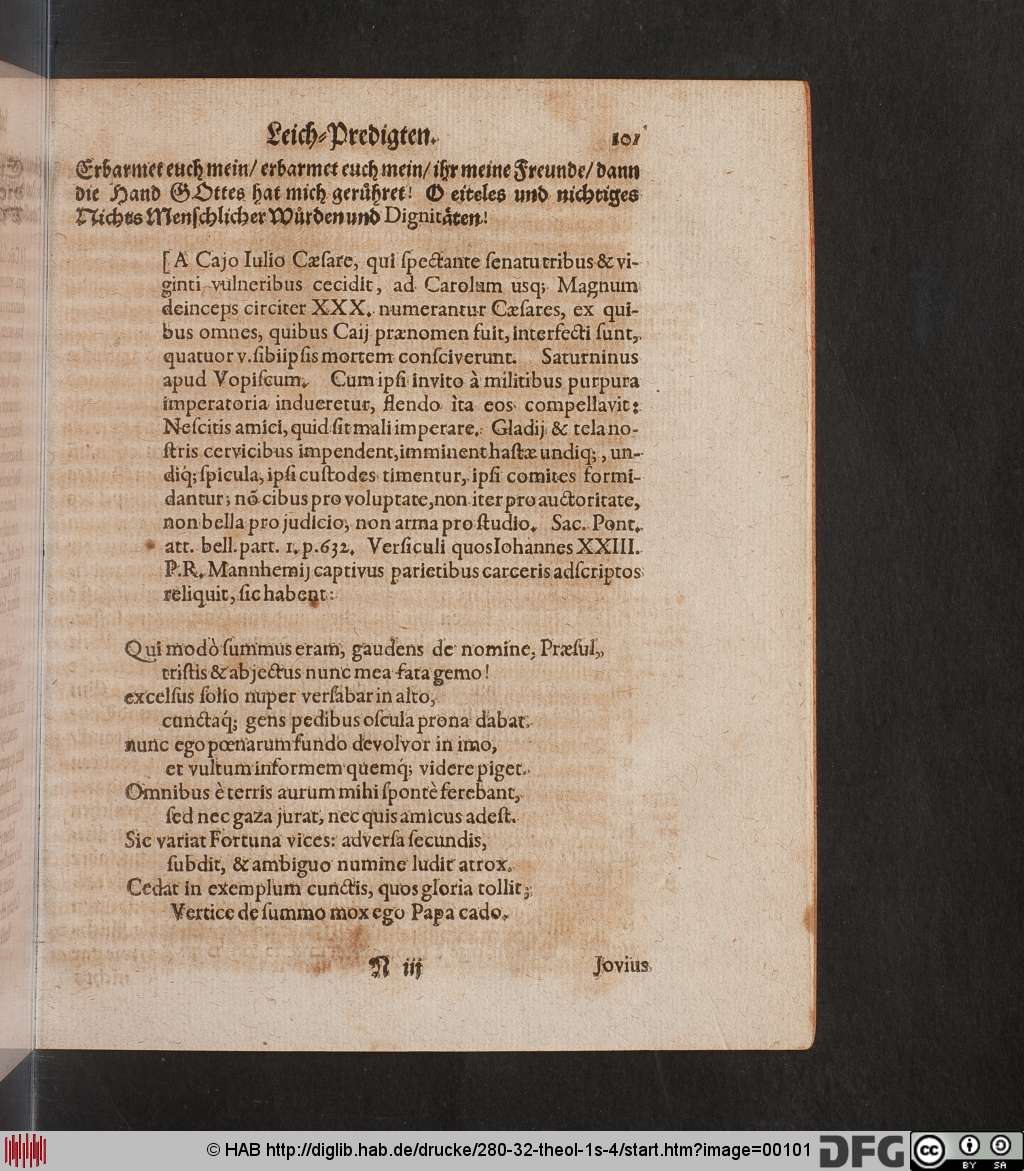 Leich-Predigten. 101
Erbarmet euch mein/ erbarmet euch mein/ ihr meine Freunde/ dann
die Hand GOttes hat mich gerühret! O eiteles und nichtiges
Nichts Menschlicher Würden und Dignitäten!
[A Cajo Iulio Cæsare, qui spectante senatu tribus & vi-
ginti vulneribus cecidit, ad Carolum usq; Magnum
deinceps circiter XXX. numerantur Cæsares, ex qui-
bus omnes, quibus Caij prænomen fuit, interfecti sunt,
quatuor v. sibiipsis mortem consciverunt. Saturninus
apud Vopiscum. Cum ipsi invito à militibus purpura
imperatoria indueretur, flendo ìta eos compellavit:
Nescitis amici, quid sit mali imperare. Gladij & tela no-
stris cervicibus impendent, imminent hastæ undiq;, un-
diq́; spicula, ipsi custodes timentur, ipsi comites formi-
dantur; nõ cibus pro voluptate, non iter pro auctoritate,
non bella pro judicio, non arma pro studio. Sac. Pont.
att. bell. part. 1. p. 632. Versiculi quos Iohannes XXIII.
P. R. Mannhemij captivus parietibus carceris adscriptos
reliquit, sic habent:
Qui modò summus eram, gaudens de nomine, Præsul,
tristis & abjectus nunc mea fata gemo!
excelsus solio nuper versabar in alto,
cunctaq́; gens pedibus oscula prona dabat.
nunc ego pœnarum fundo devolvor in imo,
et vultum informem quemq́; videre piget.
Omnibus è terris aurum mihi spontè ferebant,
sed nec gaza jurat, nec quis amicus adest.
Sic variat Fortuna vices: adversa secundis,
subdit, & ambiguo numine ludit atrox.
Cedat in exemplum cunctis, quos gloria tollit;
Vertice de summo mox ego Papa cado.
N iij Jovius
© HAB http://diglib.hab.de/drucke/280-32-theol-1s-4/start.htm?image=00101 DFG cc BY SA